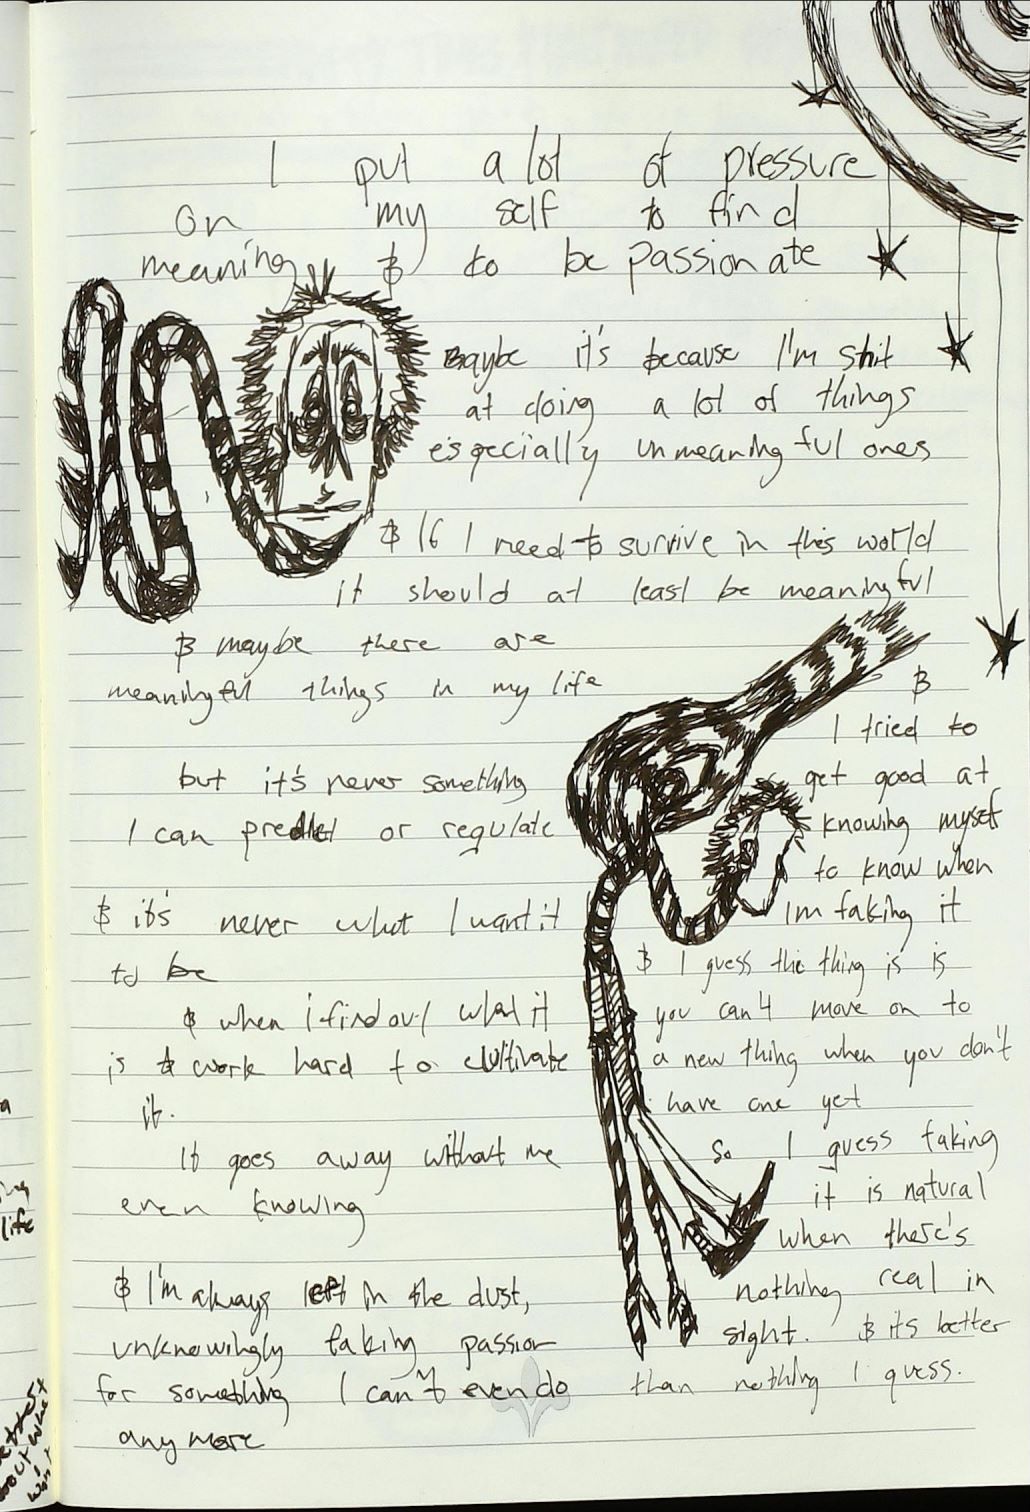 I put a lot of pressure
on my self to find
meaning & to be passionate
Maybe it's because I'm shit
at doing a lot of things
especially unmeaningful ones
& If I need to survive in this world
it should at least be meaningful
& maybe there are
meaningful things in my life
but it's never something
I can predict or regulate
& it's never what I want it
to be
& when i find out what it
is & work hard to cultivate
it.
It goes away without me
even knowing
& I'm always left in the dust,
unknowingly faking passion
for something I can't even do
any more
&
I tried to
get good at
knowing myself
to know when
I'm faking it
& I guess the thing is is
you can't move on to
a new thing when you don't
have one yet
So I guess faking
it is natural
when there's
nothing real in
sight. & its better
than nothing I guess.
life